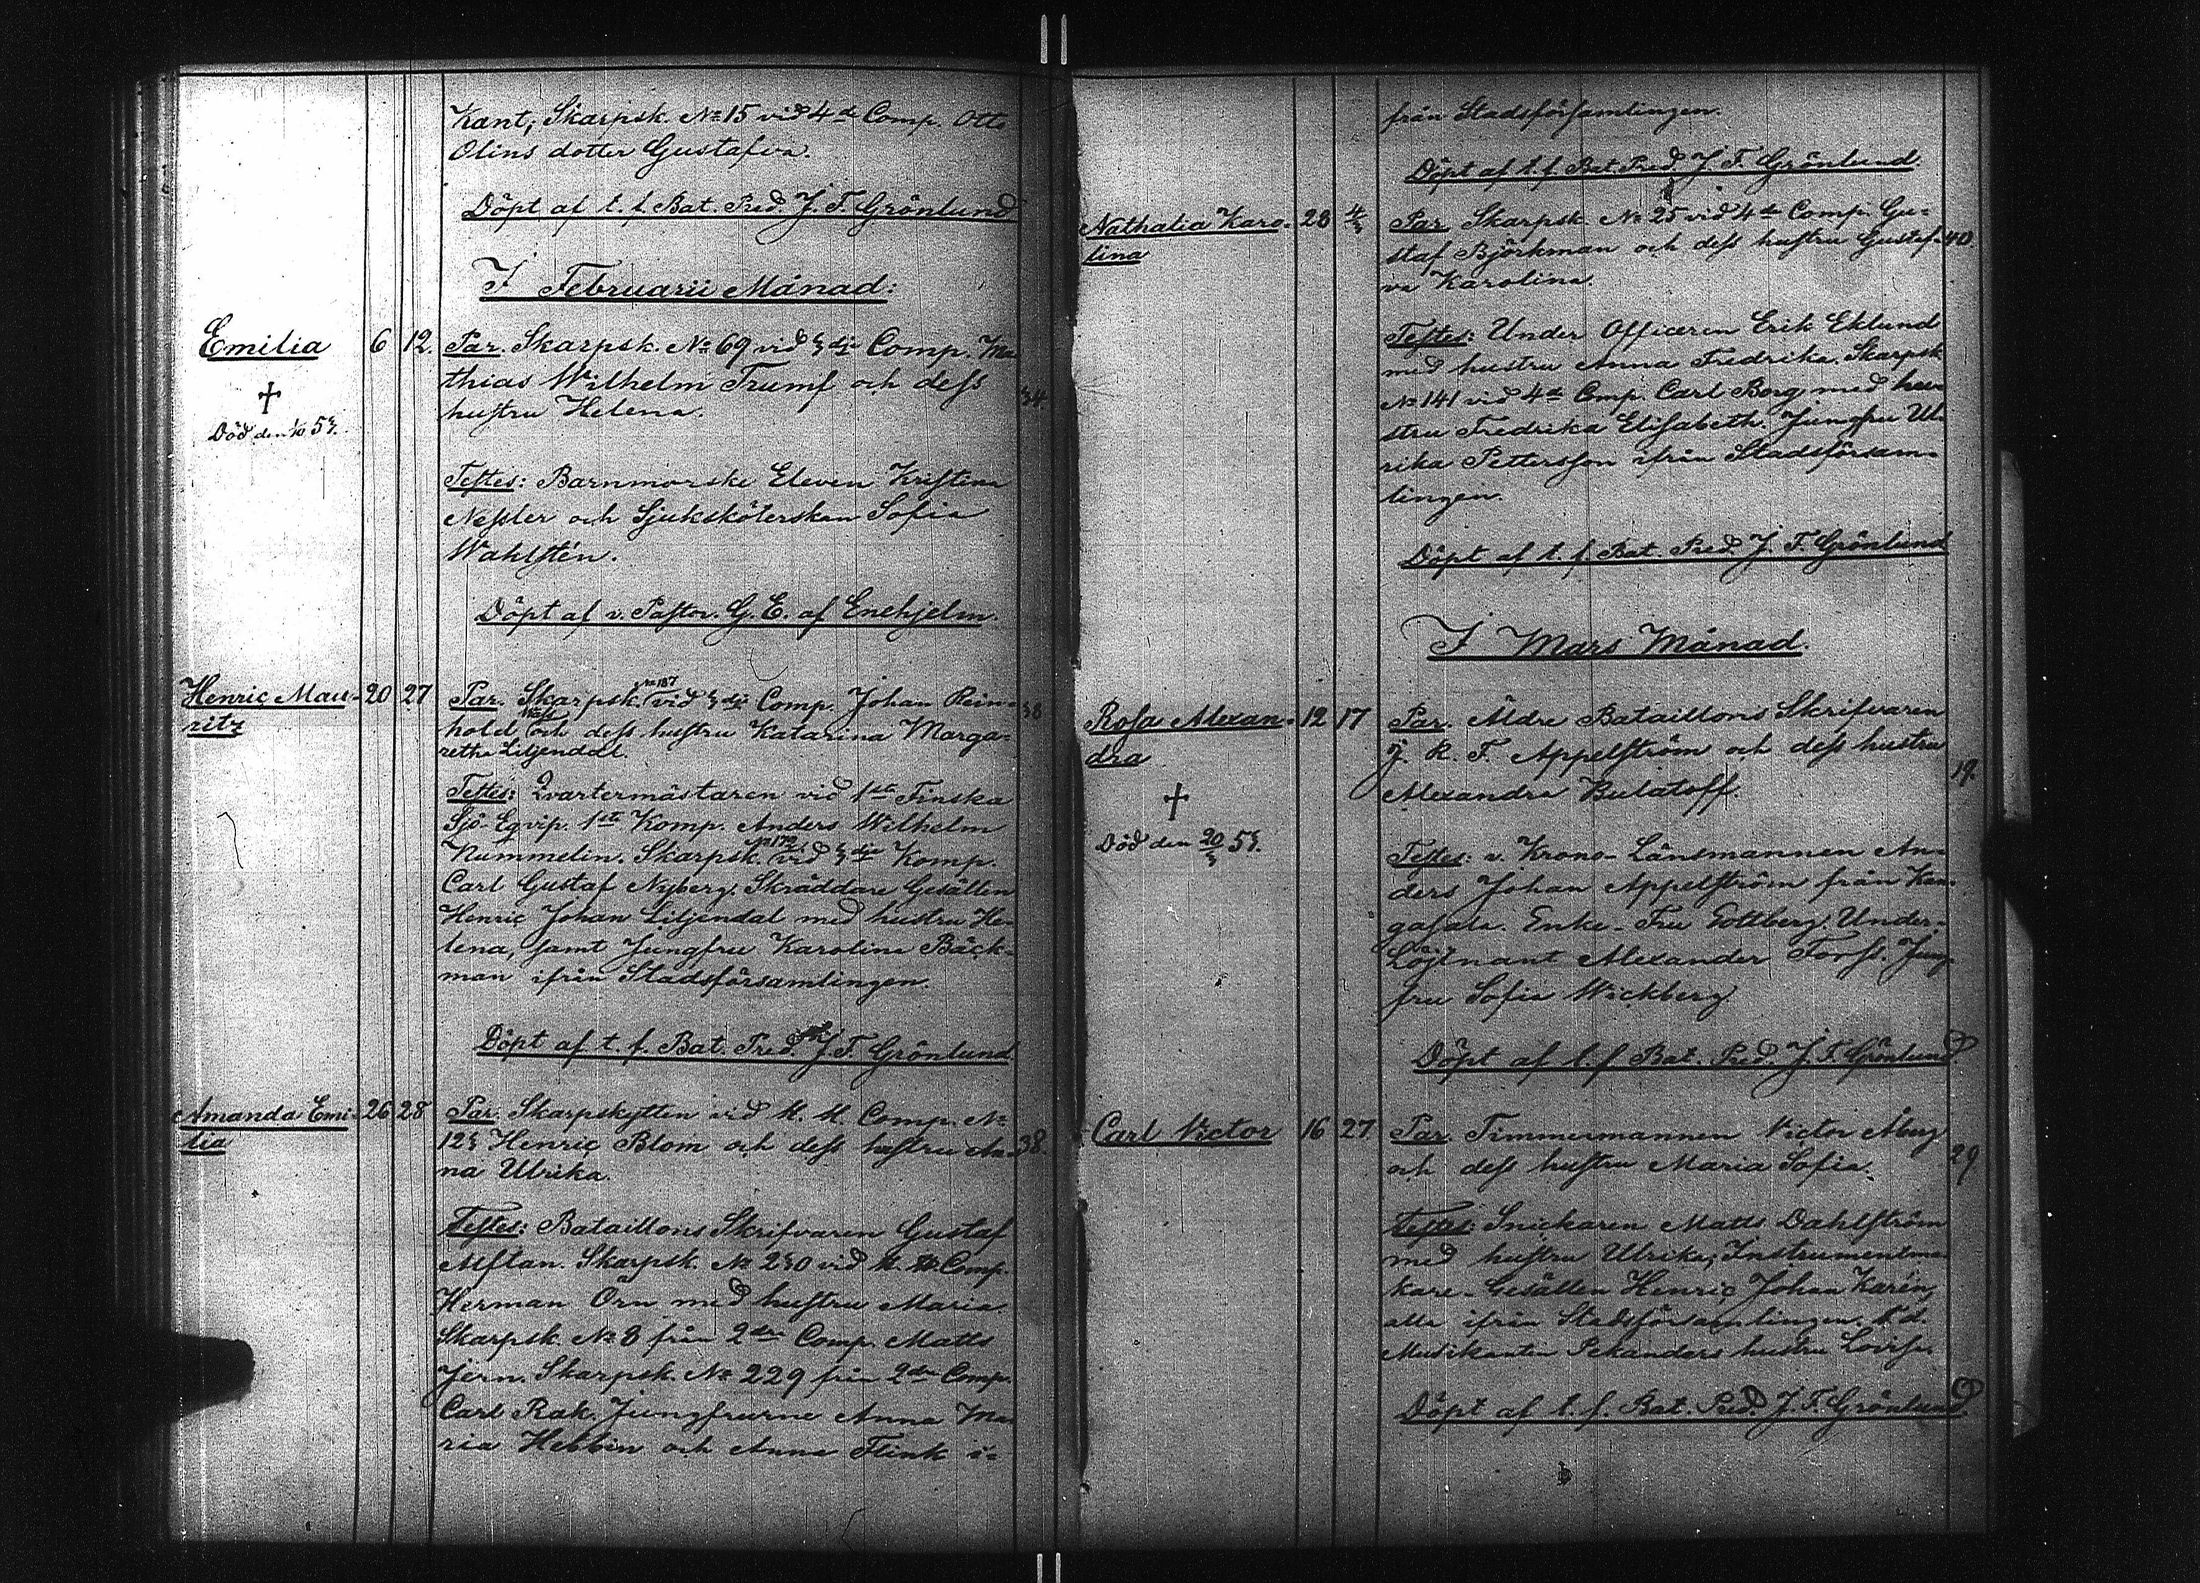 Kant, Skarpsk. No 15 vid 4de Comp. Otto
Olins dotter Gustafva.
Döpt af t. f. Bat. Pred. J. F. Grönlund
I Februarii Månad:
Emilia 6 12. Par. Skarpsk. No 69 vid 3dje Comp. Ma
thias Wilhelm Trumf och dess
hustru Helena. 34
†
Död den 53.
Testes: Barnmorske Eleven Kristina
Nessler och Sjuksköterskan Sofia
Wahlstén.
Döpt af v. Pastor G. E. af Enehjelm.
Henric Mau- 20 27 Par. Skarpsk. No 187 vid 3dje Comp. Johan Rein- 38
ritz hold och dess hustru Katarina Marga-
retha Liljendal.
Testes: Qvartermästaren vid 1sta Finska
Sjö-Eqvip. 1sta Komp. Anders Wilhelm
Nummelin. Skarpsk. No 179 vid 3dje Komp.
Carl Gustaf Nyberg. Skräddare Gesällen
Henric Johan Liljendal med hustru He-
lena, samt Jungfru Karolina Bäck-
man ifrån Stadsförsamlingen.
Döpt af t. f. Bat. Pred. J. F. Grönlund
Amanda Emi- 26 28 Par. Skarpskytten vid M. M. Comp. No
lia 123 Henric Blom och dess hustru An- 38.
na Ulrika.
Testes: Bataillons Skrifvaren Gustaf
Alftan. Skarpsk. No 230 vid M. M. Comp.
Herman Örn med hustru Maria
Skarpsk. No 8 från 2dra Comp. Matts
Jern. Skarpsk. No 229 från 2dra Comp.
Carl Rak. Jungfrurne Anna Ma
ria Hebbin och Anna Flink i-
från Stadsförsamlingen.
Döpt af t. f. Bat. Pred. J. F. Grönlund
Nathalia Karo- 28 4/3 Par. Skarpsk. No 25 vid 4de Comp. Gu-
lina staf Björkman och dess hustru Gustaf- 40
va Karolina.
Testes: Under Officeren Erik Eklund
med hustru Anna Fredrika. Skarpsk
No 141 vid 4de Comp. Carl Borg med hu
stru Fredrika Elisabeth. Jungfru Ul
rika Pettersson ifrån Stadsförsam-
lingen.
Döpt af t. f. Bat. Pred. J. F. Grönlund
I Mars Månad.
Rosa Alexan- 12 17 Par. Äldre Bataillons Skrifvaren
dra J. R. F. Appelström och dess hustru
Alexandra Bulatoff. 19.
†
Död den 20/3 53.
Testes: v. Krono-Länsmannen An-
ders Johan Appelström från Kan-
gasala. Enke-Fru Gottberg. Under-
Löjtnant Alexander Forss. Jung-
fru Sofia Wickberg
Döpt af t. f. Bat. Pred J. F. Grönlund
Carl Victor 16 27 Par. Timmermannen Victor Åberg
och dess hustru Maria Sofia. 29
Testes: Snickaren Matts Dahlström
med hustru Ulrika, Instrumentma
kare-Gesällen Henric Johan Karén,
alla ifrån Stadsförsamlingen.
Musikanten Pekanders hustru Lovisa.
Döpt af t. f. Bat. Pred. J. F. Grönlund